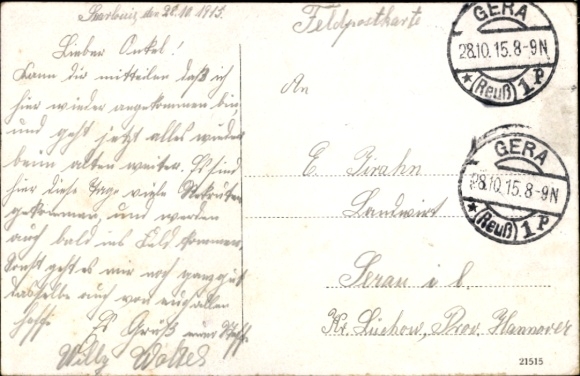 den 28.10.1915.
Lieber Onkel!
Kann dir mitteilen daß ich
hier wieder angekommen bin,
und geht jetzt alles wieder
beim alten weiter. Es sind
hier diese Tage viele Rekruten
gekommen, und werden
auch bald ins Feld kommen.
Sonst geht es mir noch ganz gut
dasselbe auch von euch allen
hoffe.
Es Grüßt euer Neffe
Willy
Feldpostkarte
GERA
28.10.15.8-9N
(Reuß) 1P
An
GERA
28.10.15.8-9N
(Reuß) 1P
E. Pirahn
Landwirt
i. L.
Kr. Lüchow, Prov. Hannover
21515